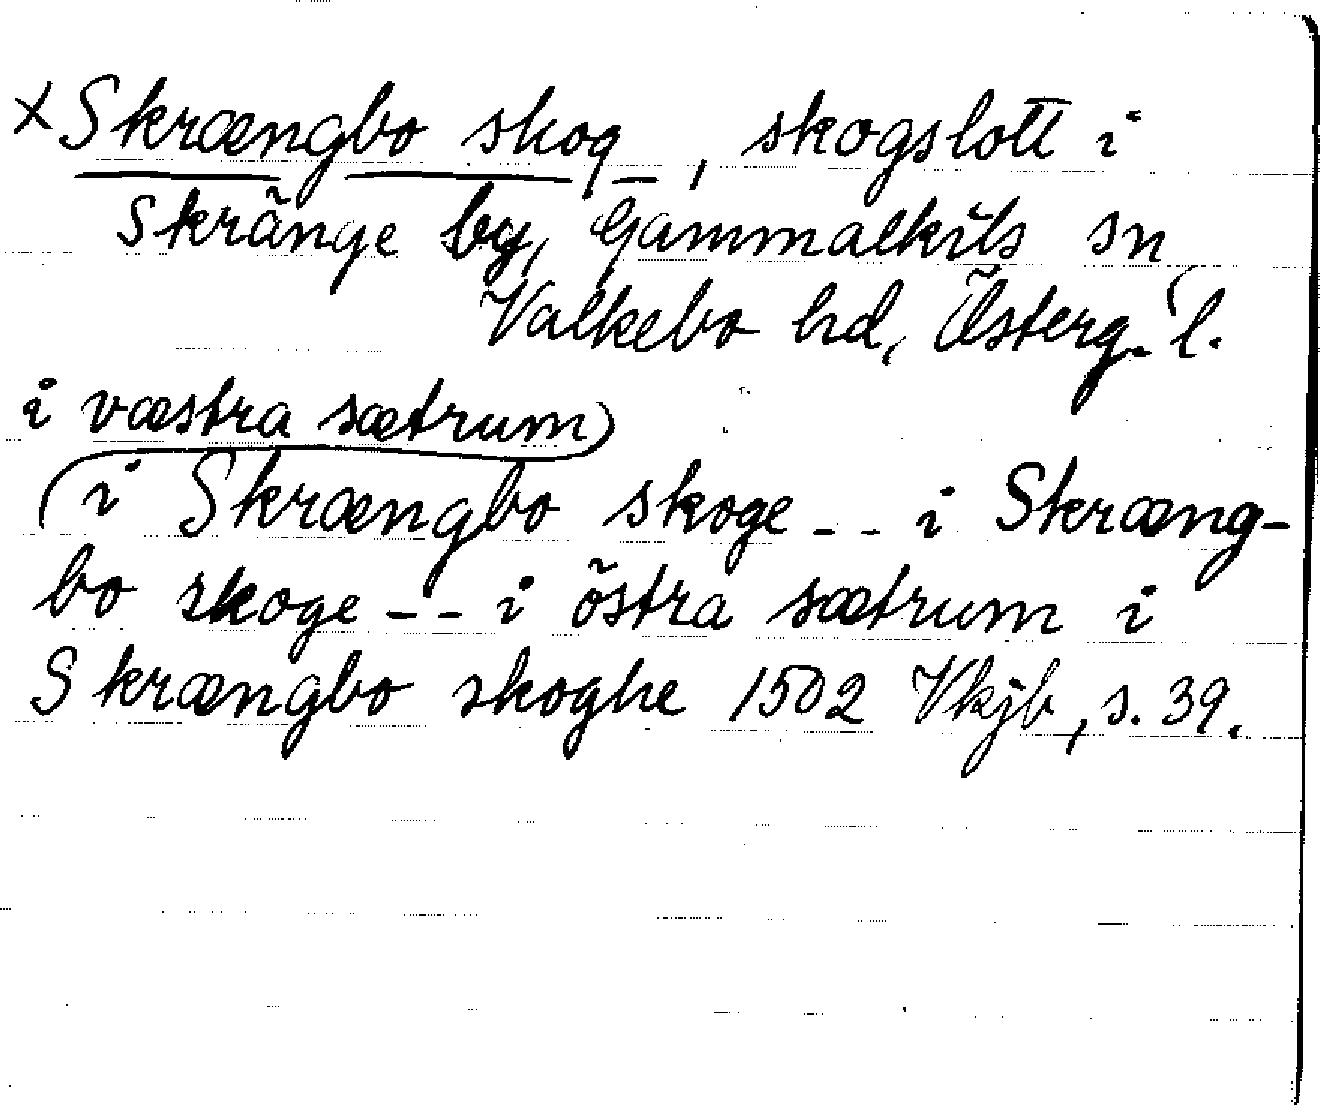 ×Skrængbo skog, skogslott i
Skränge by, Gammalkils sn,
Valkebo hd, Österg. l.
i væstra sætrum)
(i Skrængbo skoge -- i Skræng-
bo skoge -- i östra sætrum i
Skrængbo skoghe 1502 Vkjb, s. 39.